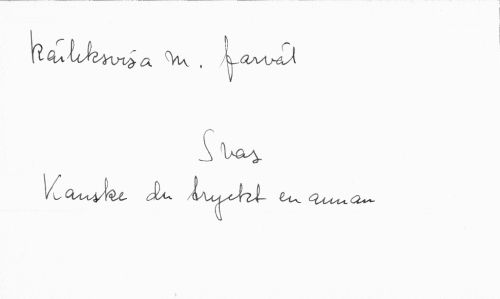 Kärleksvisa m. farväl
Svar
Kanske du tryckt en annan